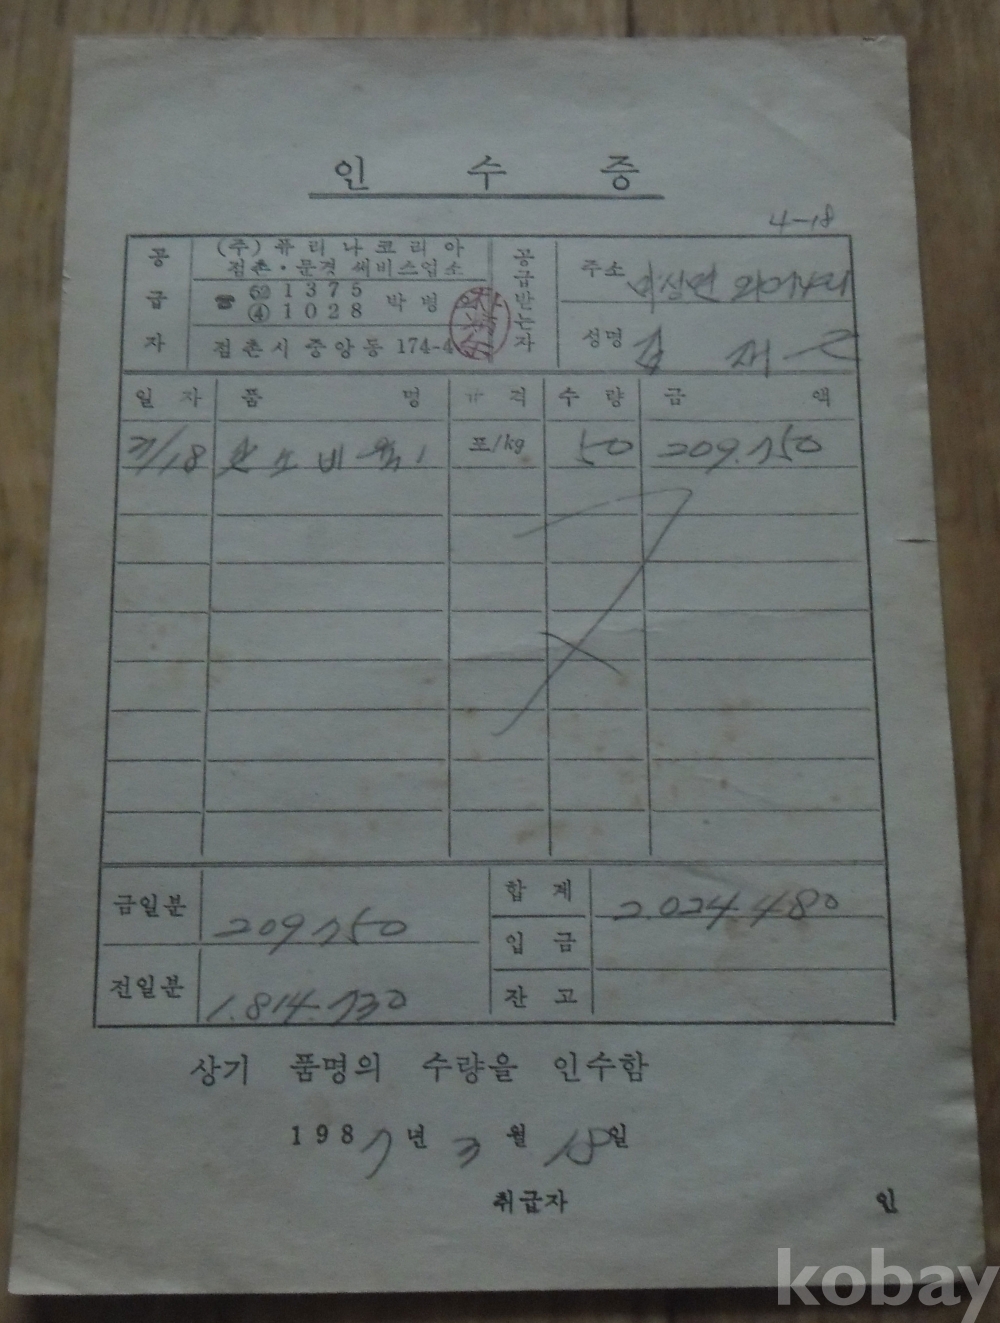 인 수 증
4-18
공급자
(주) 퓨리나코리아
점촌·문경 써비스업소
☎ 52 1375
④ 1028
박병
점촌시 중앙동 174-4
공급받는자
주소
성명 김 재
일자 품명 규격 수량 금액
3/18 포/kg 50 209.750
금일분 209750
전일분 1.814.730
합계 2.024.480
입금
잔고
상기 품명의 수량을 인수함
1987년 3월 18일
취급자 인
kobay